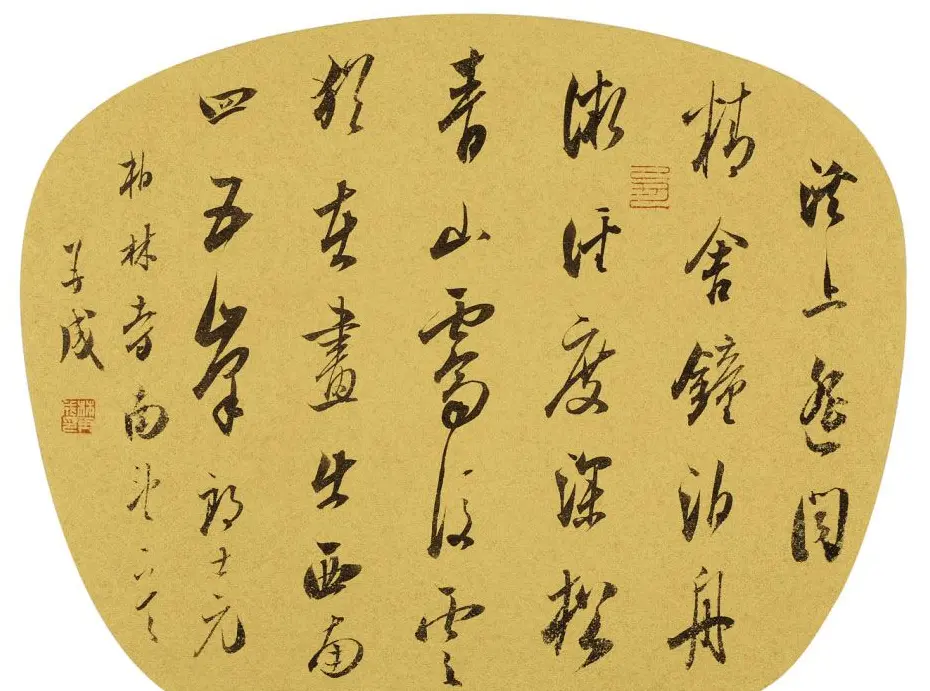 溪上遙聞
精舍鐘泊舟
微徑度深松
青山霽後雲
猶在畫出西南
四五峯 郎士元
柏林寺南望
成